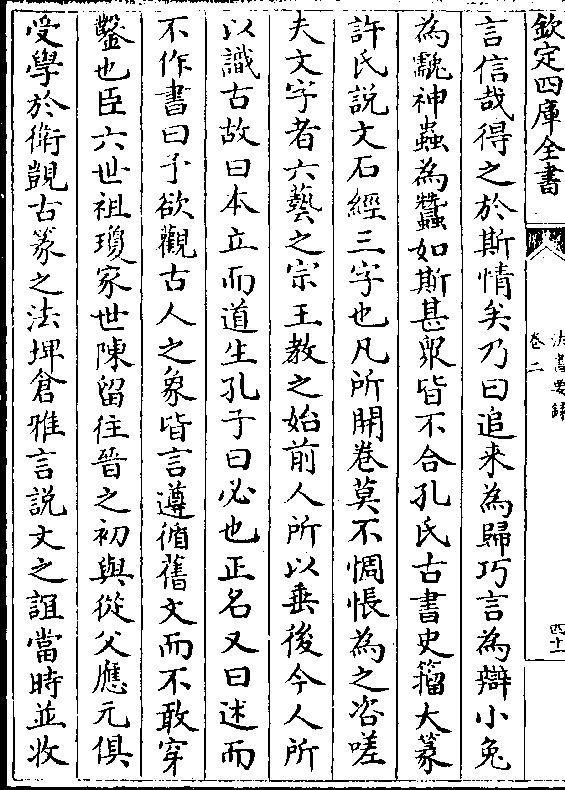 欽定四庫全書
法書要錄
卷二
四十
言信哉得之於斯情矣乃曰追来為歸巧言為辯小兔
為䨲神蟲為蠶如斯甚眾皆不合孔氏古書史籀大篆
許氏說文石經三字也凡所開卷莫不惆悵為之咨嗟
夫文字者六藝之宗王教之始前人所以垂後今人所
以識古故曰本立而道生孔子曰必也正名又曰述而
不作書曰予欲觀古人之象皆言遵循舊文而不敢穿
鑿也臣六世祖瓊家世陳留往晉之初與從父應元俱
受學於衛覬古篆之法埤倉雅言說文之誼當時並收